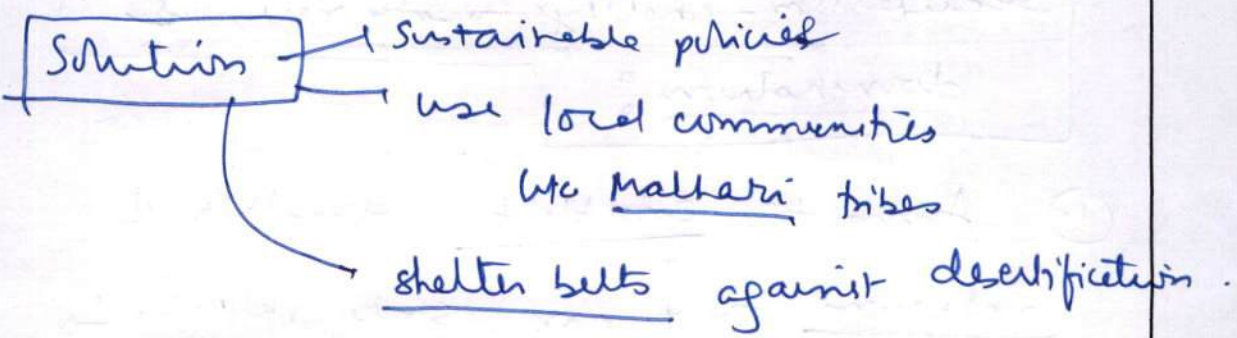 Solution
Sustainable policies
use local communities
like Malhari tribes
shelter belts against desertification.